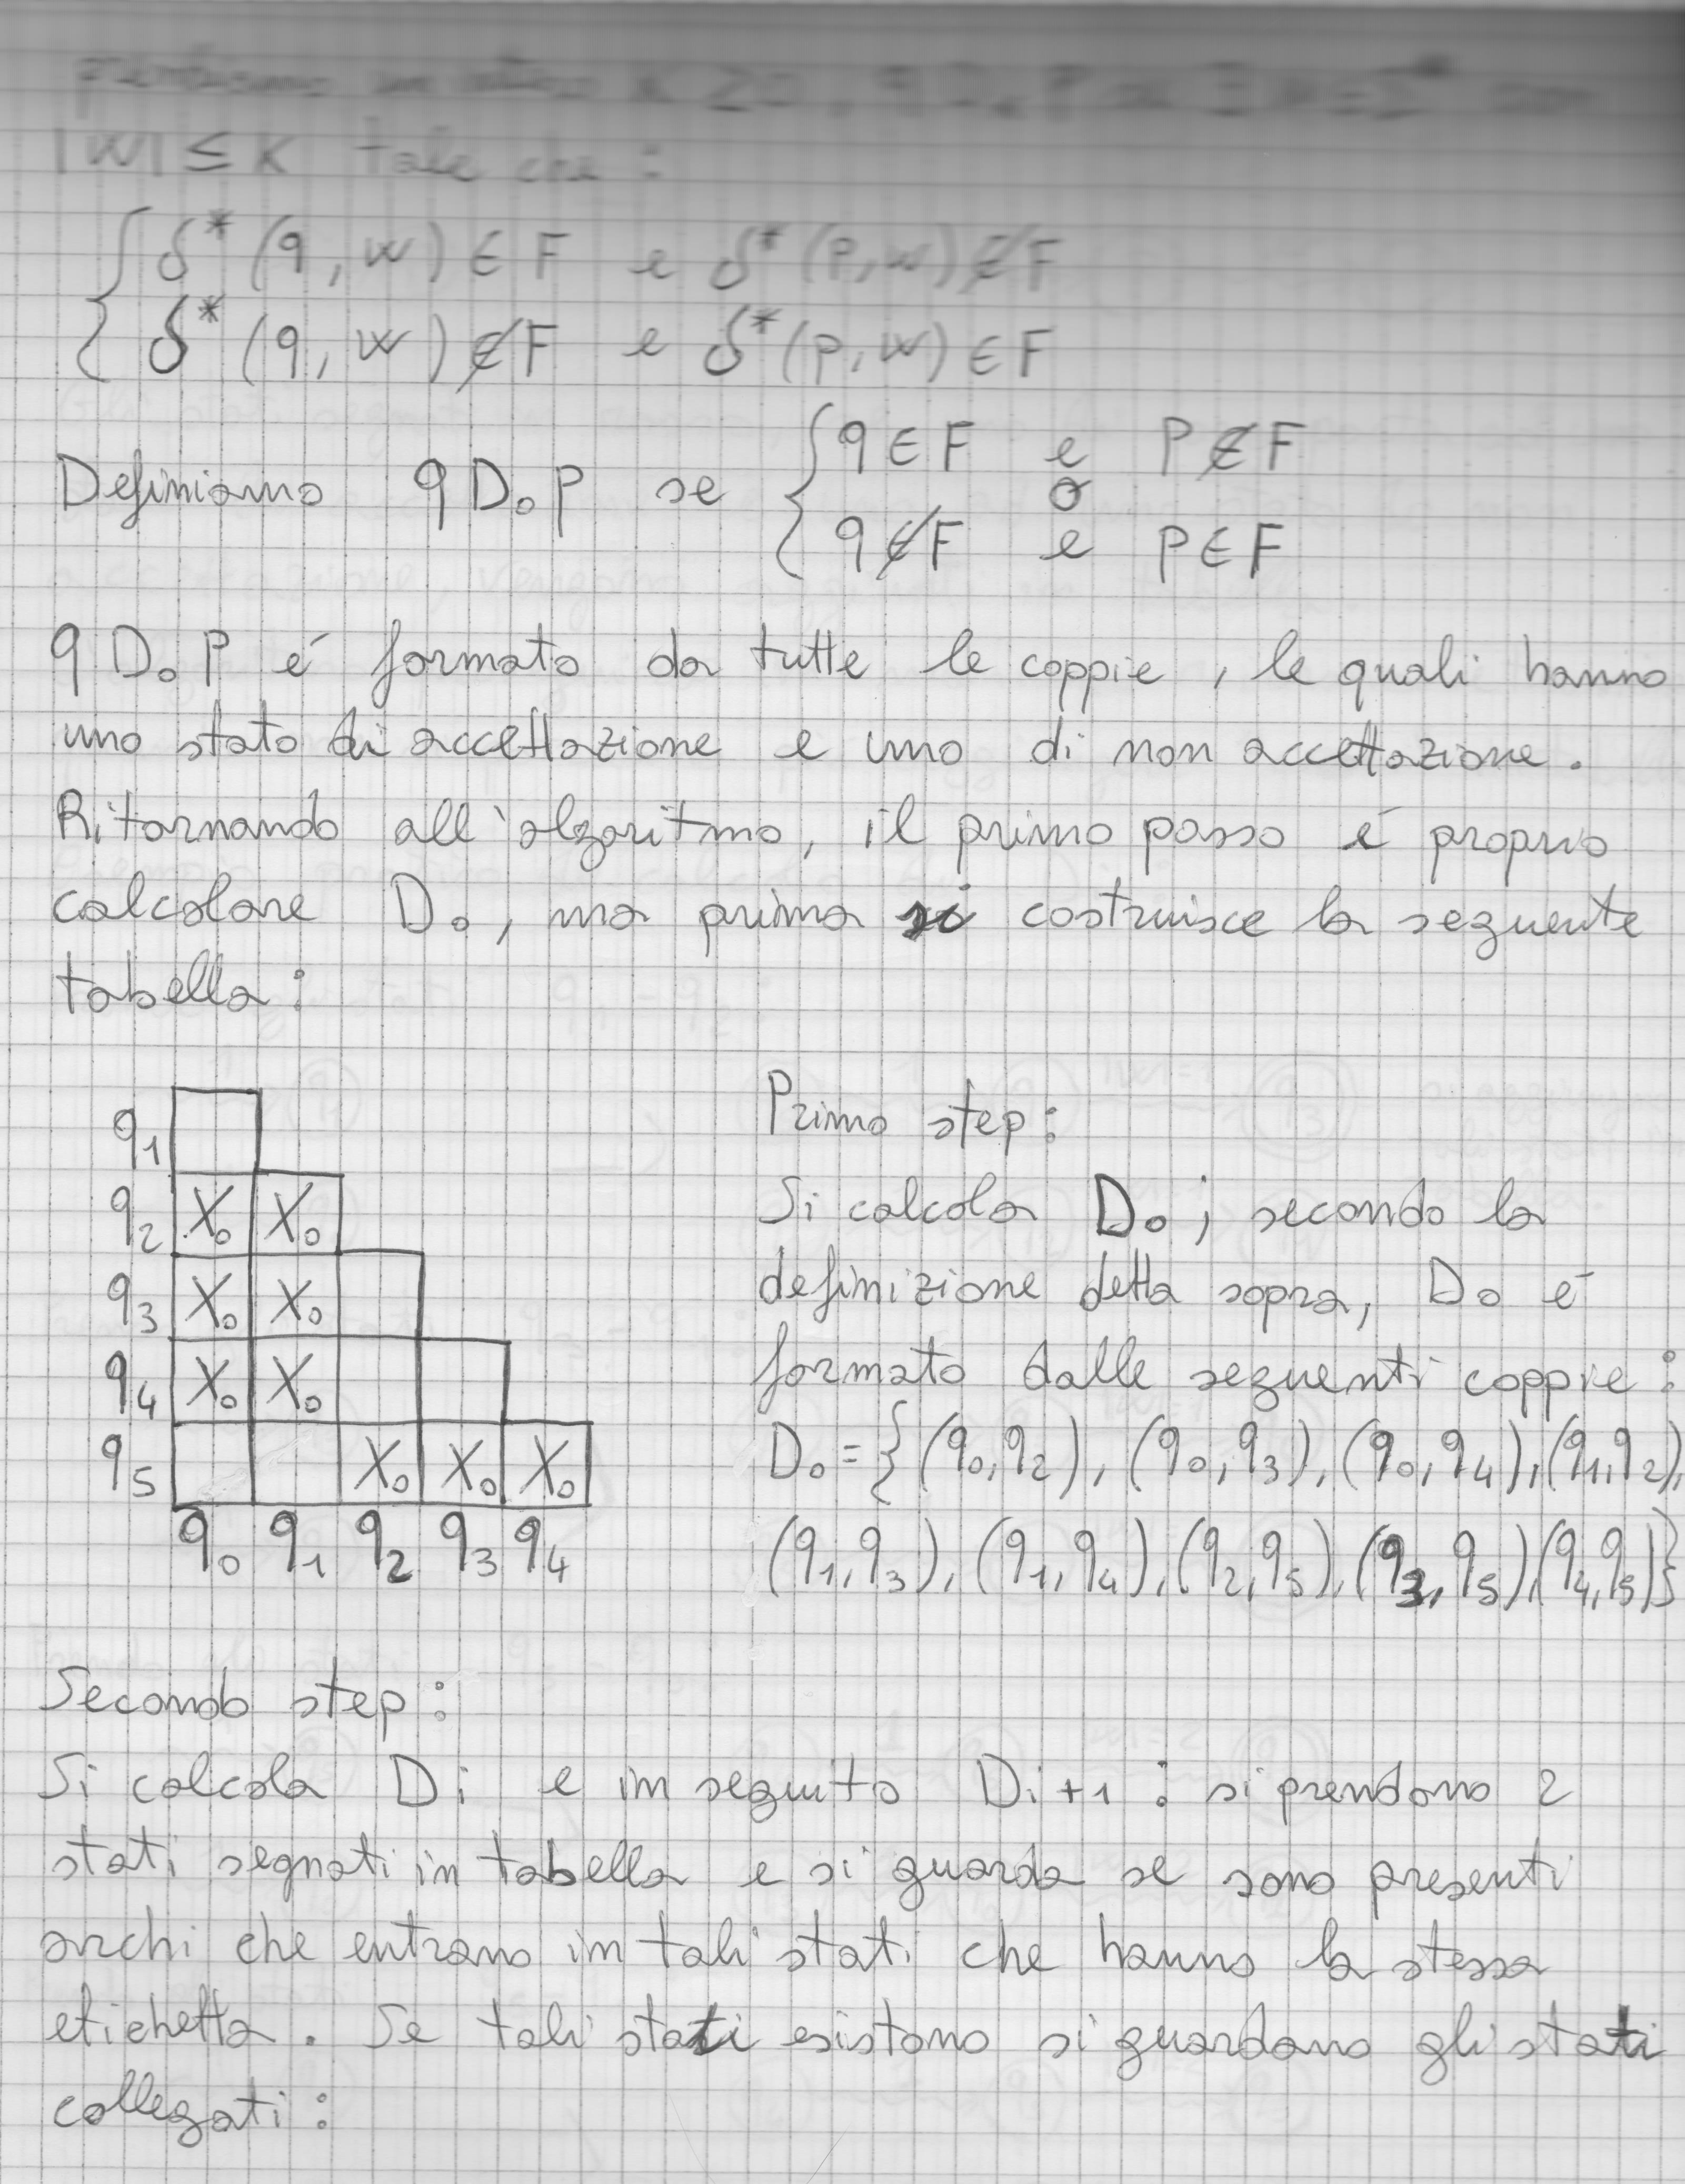 K ≥ 0, q D_K p se ∃ w ∈ Σ*
|w| ≤ K tale che:
{ δ*(q, w) ∈ F e δ*(p, w) ∉ F
δ*(q, w) ∉ F e δ*(p, w) ∈ F
Definiamo q D₀ p se { q ∈ F e p ∉ F
o
q ∉ F e p ∈ F
q D₀ p é formato da tutte le coppie, le quali hanno
uno stato di accettazione e uno di non accettazione.
Ritornando all'algoritmo, il primo passo é proprio
calcolare D₀, ma prima si costruisce la seguente
tabella:
q₁
q₂ X₀ X₀
q₃ X₀ X₀
q₄ X₀ X₀
q₅ X₀ X₀ X₀
q₀ q₁ q₂ q₃ q₄
Primo step:
Si calcola D₀; secondo la
definizione detta sopra, D₀ é
formato dalle seguenti coppie:
D₀ = {(q₀,q₂), (q₀,q₃), (q₀,q₄), (q₁,q₂),
(q₁,q₃), (q₁,q₄), (q₂,q₅), (q₃,q₅), (q₄,q₅)}
Secondo step:
Si calcola Di e in seguito Di+1 : si prendono 2
stati segnati in tabella e si guarda se sono presenti
archi che entrano in tali stati che hanno la stessa
etichetta. Se tali stati esistono si guardano gli stati
collegati: